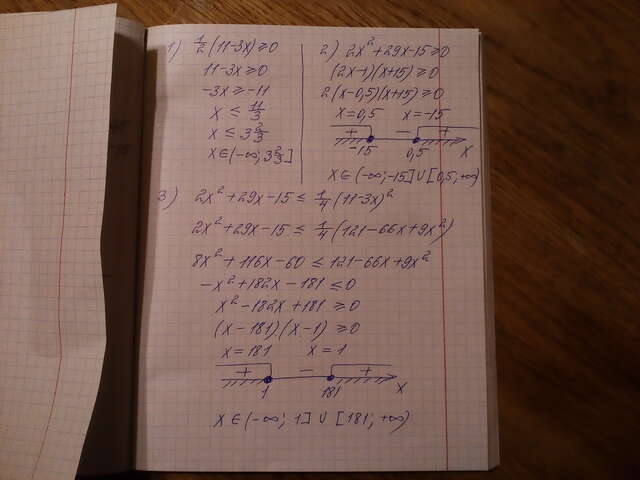 1) 1/2(11-3x)≥0
11-3x≥0
-3x≥-11
x ≤ 11/3
x ≤ 3 2/3
x∈(-∞; 3 2/3]
2) 2x²+29x-15≥0
(2x-1)(x+15)≥0
2(x-0,5)(x+15)≥0
x=0,5 x=-15
+ - +
-15 0,5 x
x∈(-∞;-15]∪[0,5;+∞)
3) 2x²+29x-15 ≤ 1/4(11-3x)²
2x²+29x-15 ≤ 1/4(121-66x+9x²)
8x²+116x-60 ≤ 121-66x+9x²
-x²+182x-181 ≤0
x²-182x+181 ≥0
(x-181)(x-1) ≥0
x=181 x=1
+ - +
1 181 x
x∈(-∞; 1]∪[181; +∞)